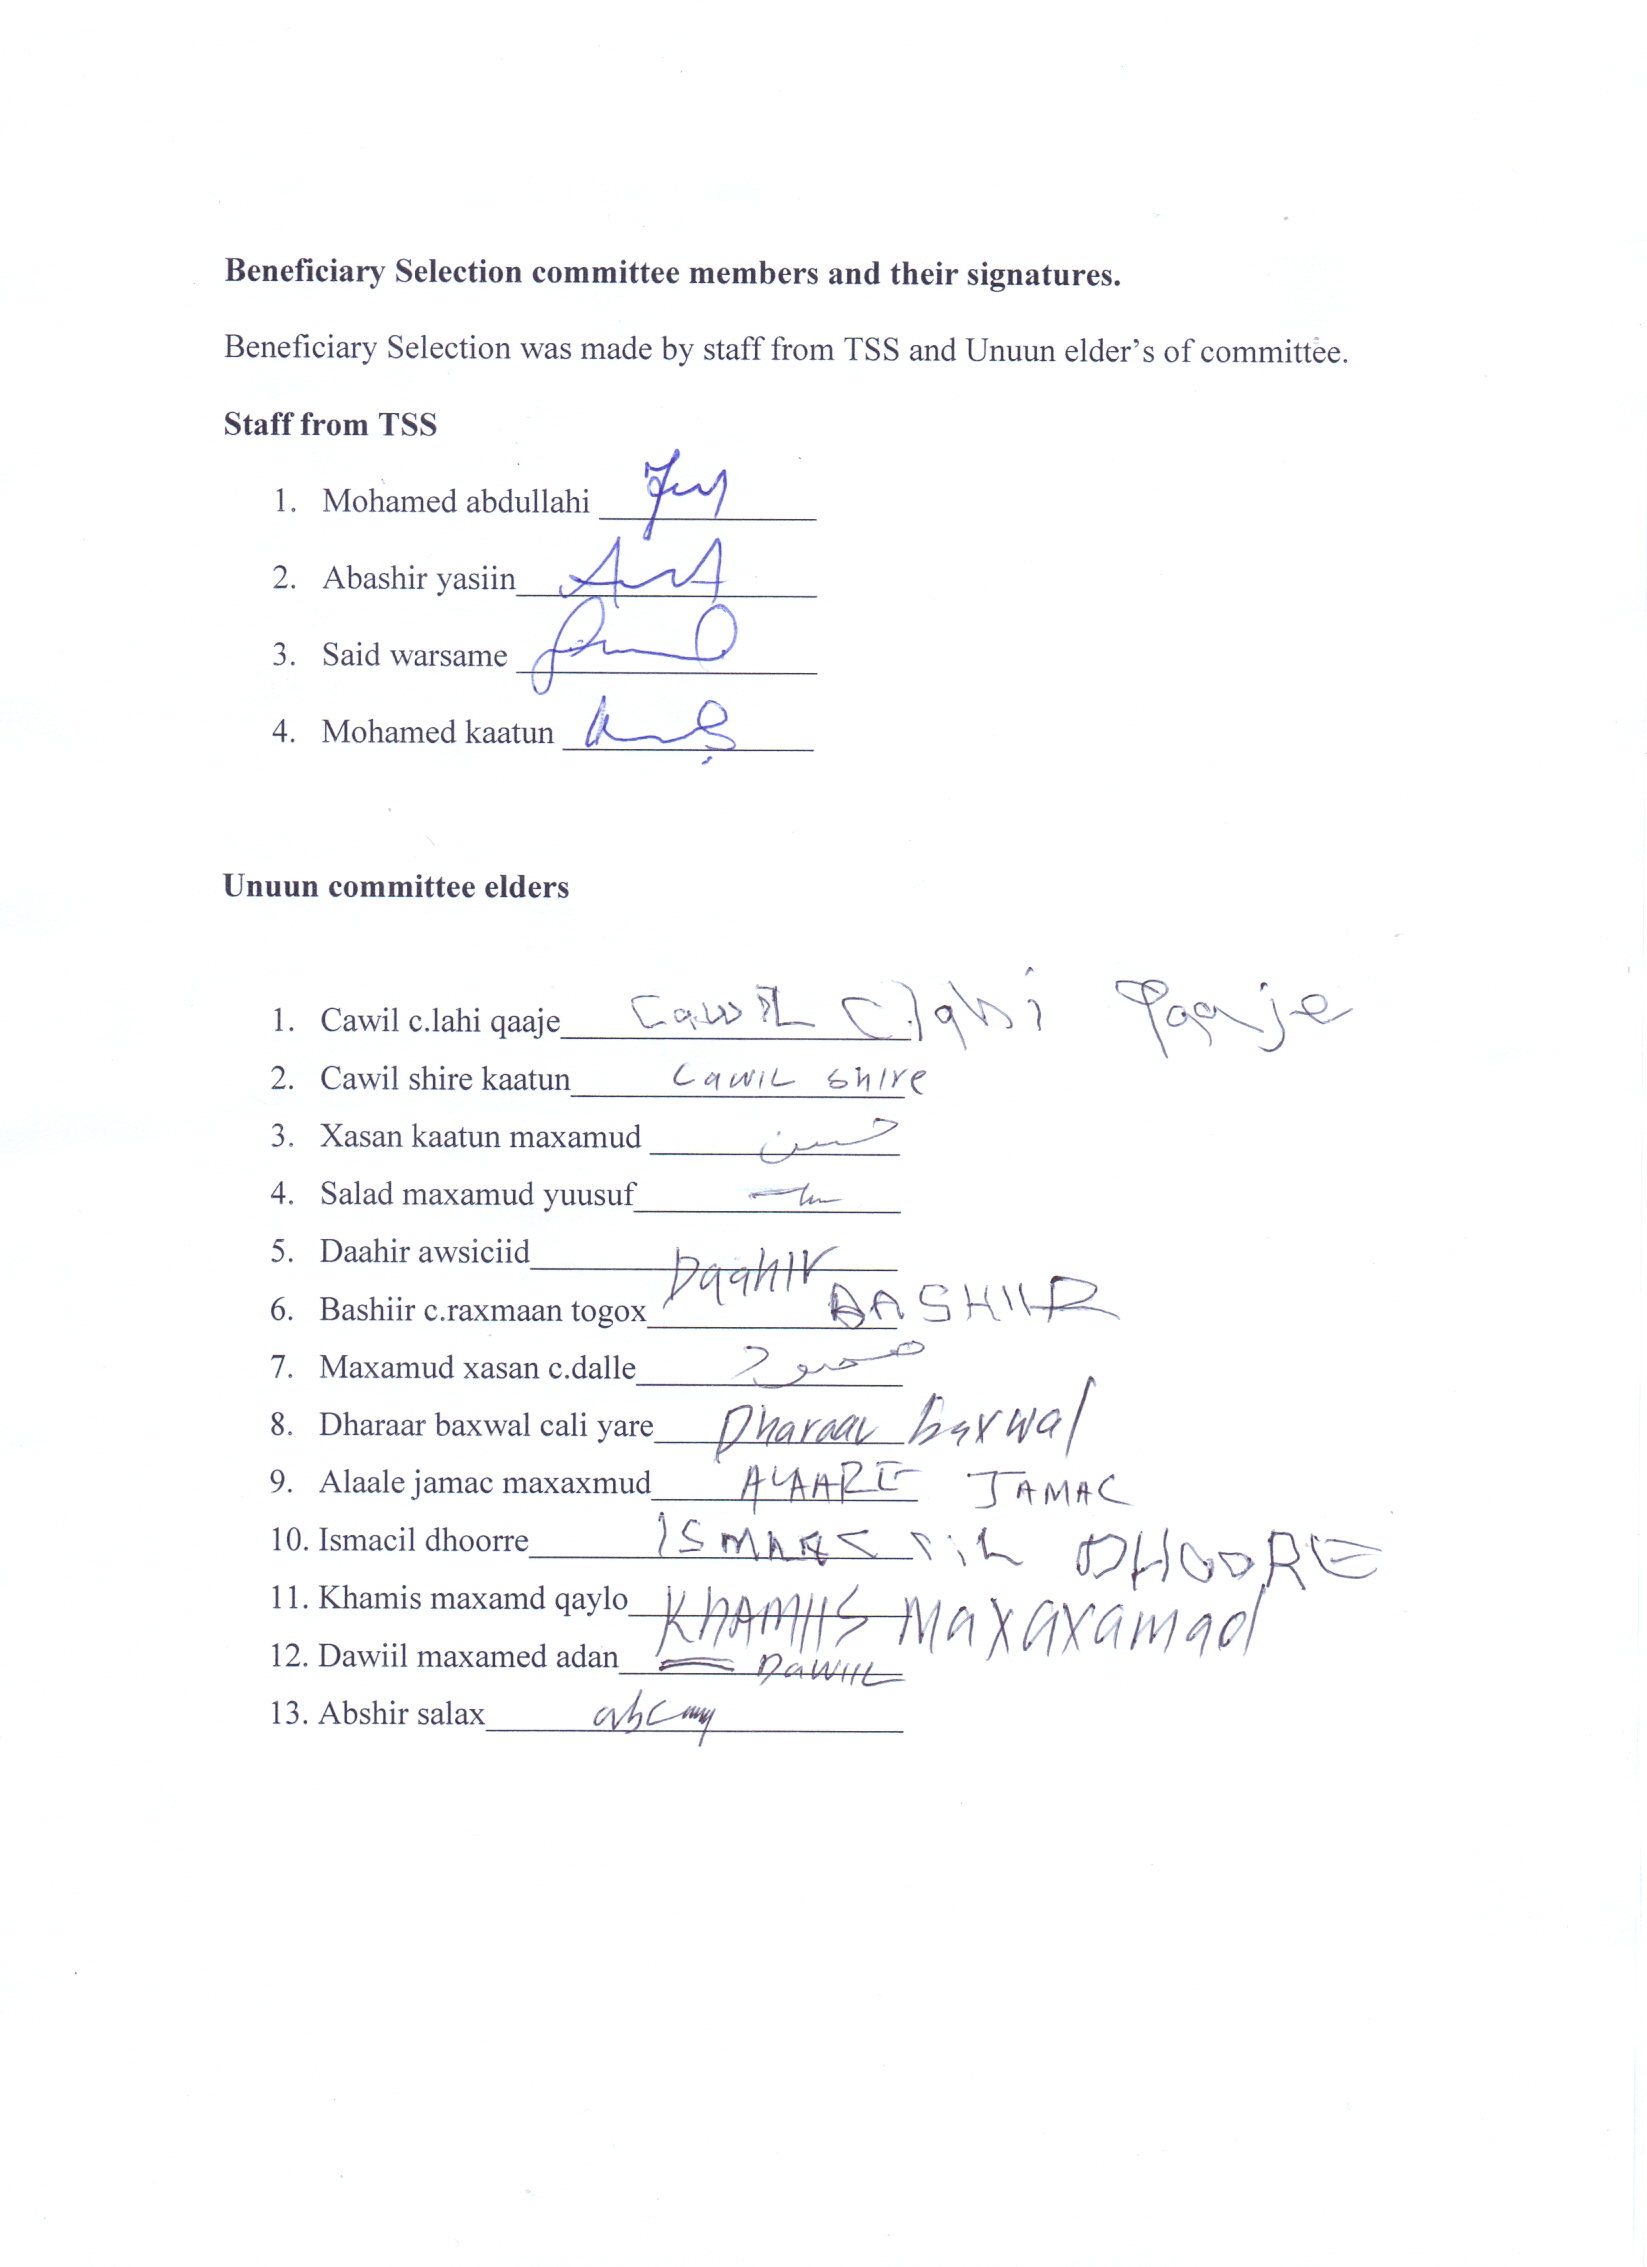 Beneficiary Selection committee members and their signatures.
Beneficiary Selection was made by staff from TSS and Unuun elder's of committee.
Staff from TSS
1. Mohamed abdullahi
2. Abashir yasiin
3. Said warsame
4. Mohamed kaatun
Unuun committee elders
1. Cawil c.lahi qaaje Cawil C.lahi Qaaje
2. Cawil shire kaatun CAWIL SHIRE
3. Xasan kaatun maxamud حسن
4. Salad maxamud yuusuf
5. Daahir awsiciid Daahir
6. Bashiir c.raxmaan togox BASHIIR
7. Maxamud xasan c.dalle محمود
8. Dharaar baxwal cali yare Dharaar baxwal
9. Alaale jamac maxaxmud JAMAC
10. Ismacil dhoorre DHOORE
11. Khamis maxamd qaylo KHAMIIS Maxaxamad
12. Dawiil maxamed adan DAWIIL
13. Abshir salax